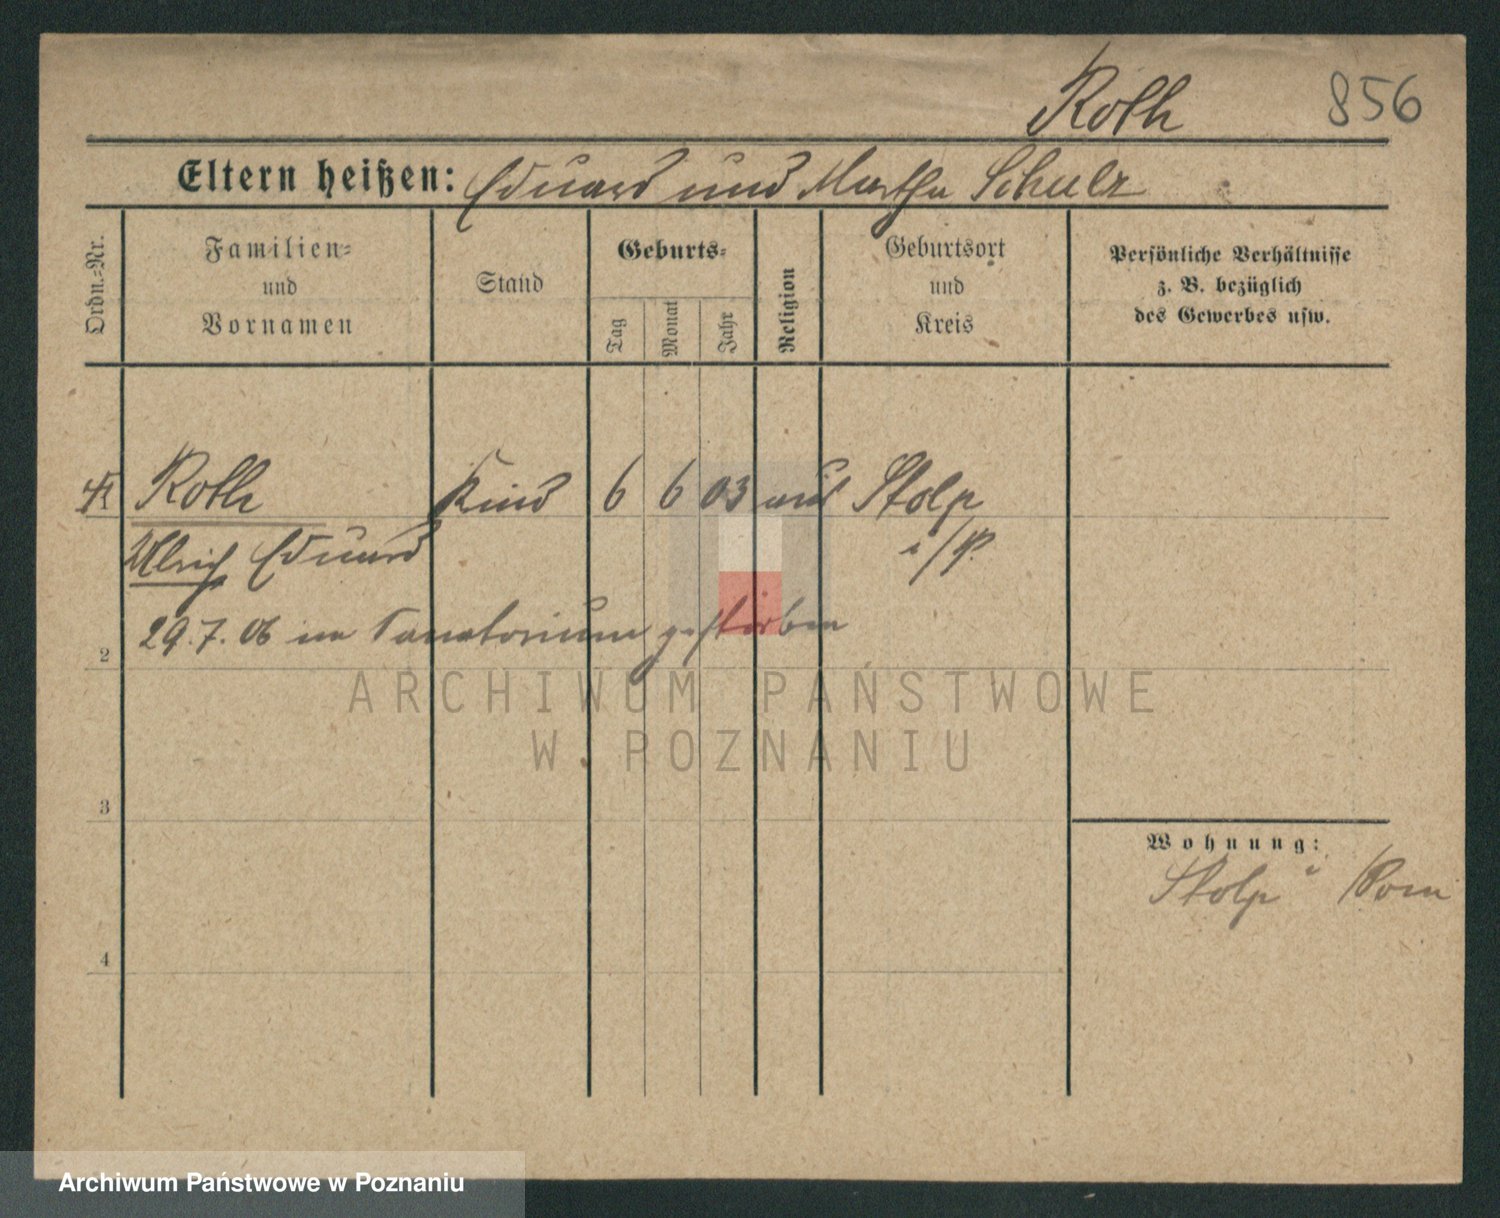 Roth 856
Eltern heißen: Eduard und Martha Schulz
Ordn.-Nr.
Familien-
und
Vornamen
Stand
Geburts-
Tag
Monat
Jahr
Religion
Geburtsort
und
Kreis
Persönliche Verhältnisse
z. B. bezüglich
des Gewerbes usw.
Roth Kind 6 6 03 Stolp
Ulrich Eduard i/P.
29.7.06 im Sanatorium gestorben
2
ARCHIWUM PAŃSTWOWE
W POZNANIU
3
Wohnung:
Stolp i/Pom
4
Archiwum Państwowe w Poznaniu